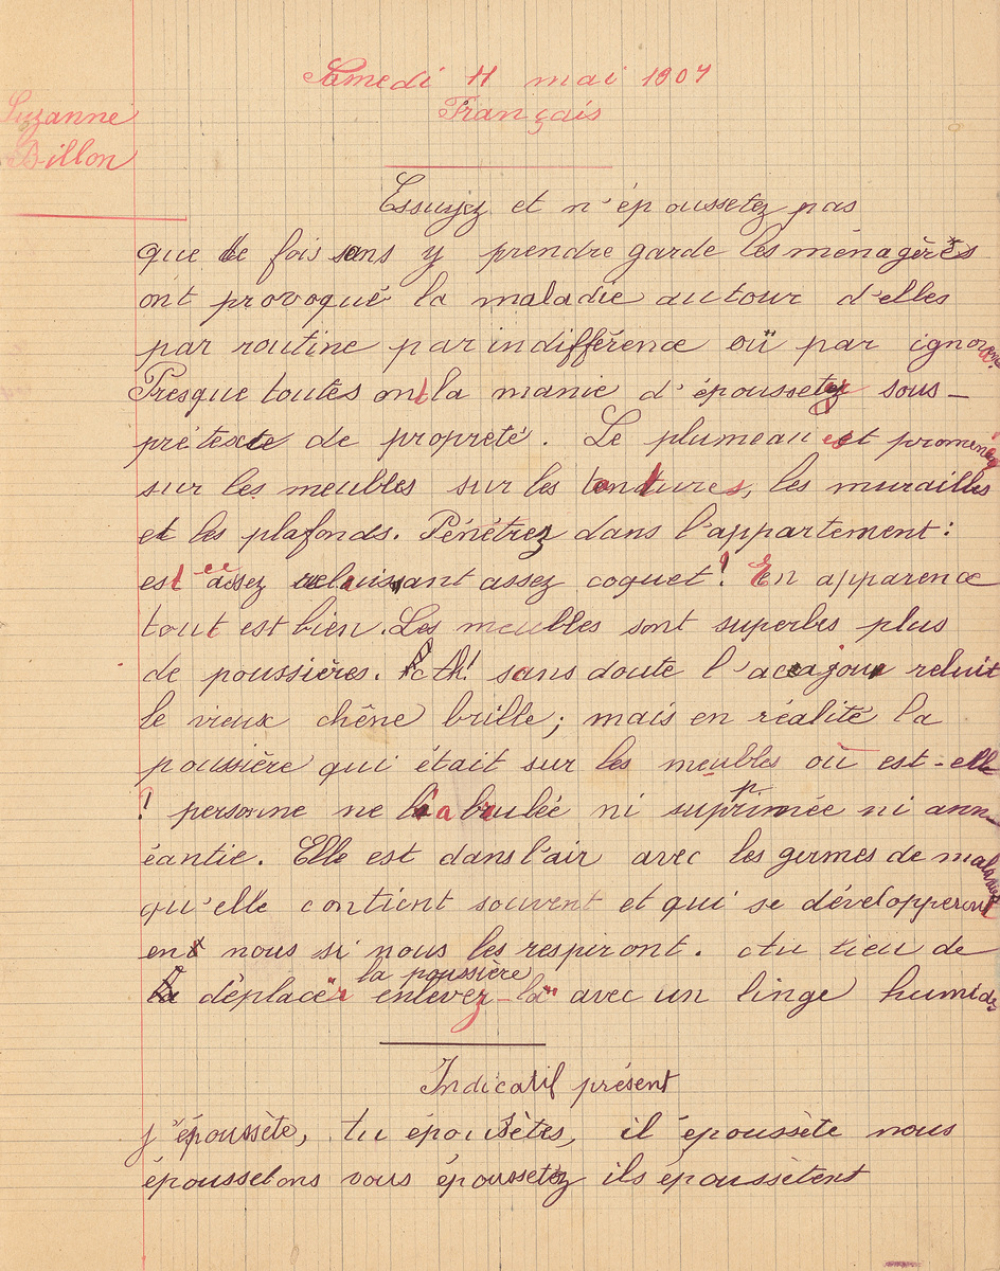 Samedi 11 mai 1907
Français
Suzanne
Billon
Essuyez et n'époussetez pas
que de fois sans y prendre garde les ménagères
ont provoqué la maladie autour d'elles
par routine par indifférence où par ignoran.
Presque toutes ont la manie d'épousseter sous-
prétexte de propreté. Le plumeau est promené
sur les meubles sur les tentures, les murailles
et les plafonds. Pénétrez dans l'appartement :
est assez reluisant assez coquet! En apparence
tout est bien. Les meubles sont superbes plus
de poussières. Ah! sans doute l'acajou reluit
le vieux chêne brille; mais en réalité la
poussière qui était sur les meubles où est-elle
? personne ne l'a brulée ni suprimée ni ann-
éantie. Elle est dans l'air avec les germes de malad
qu'elle contient souvent et qui se développeront
en nous si nous les respiront. Au lieu de
la poussière
déplacer enlevez-la" avec un linge humide
Indicatif présent
j'époussète, tu époussètes, il époussète nous
époussetons vous époussetez ils époussètent